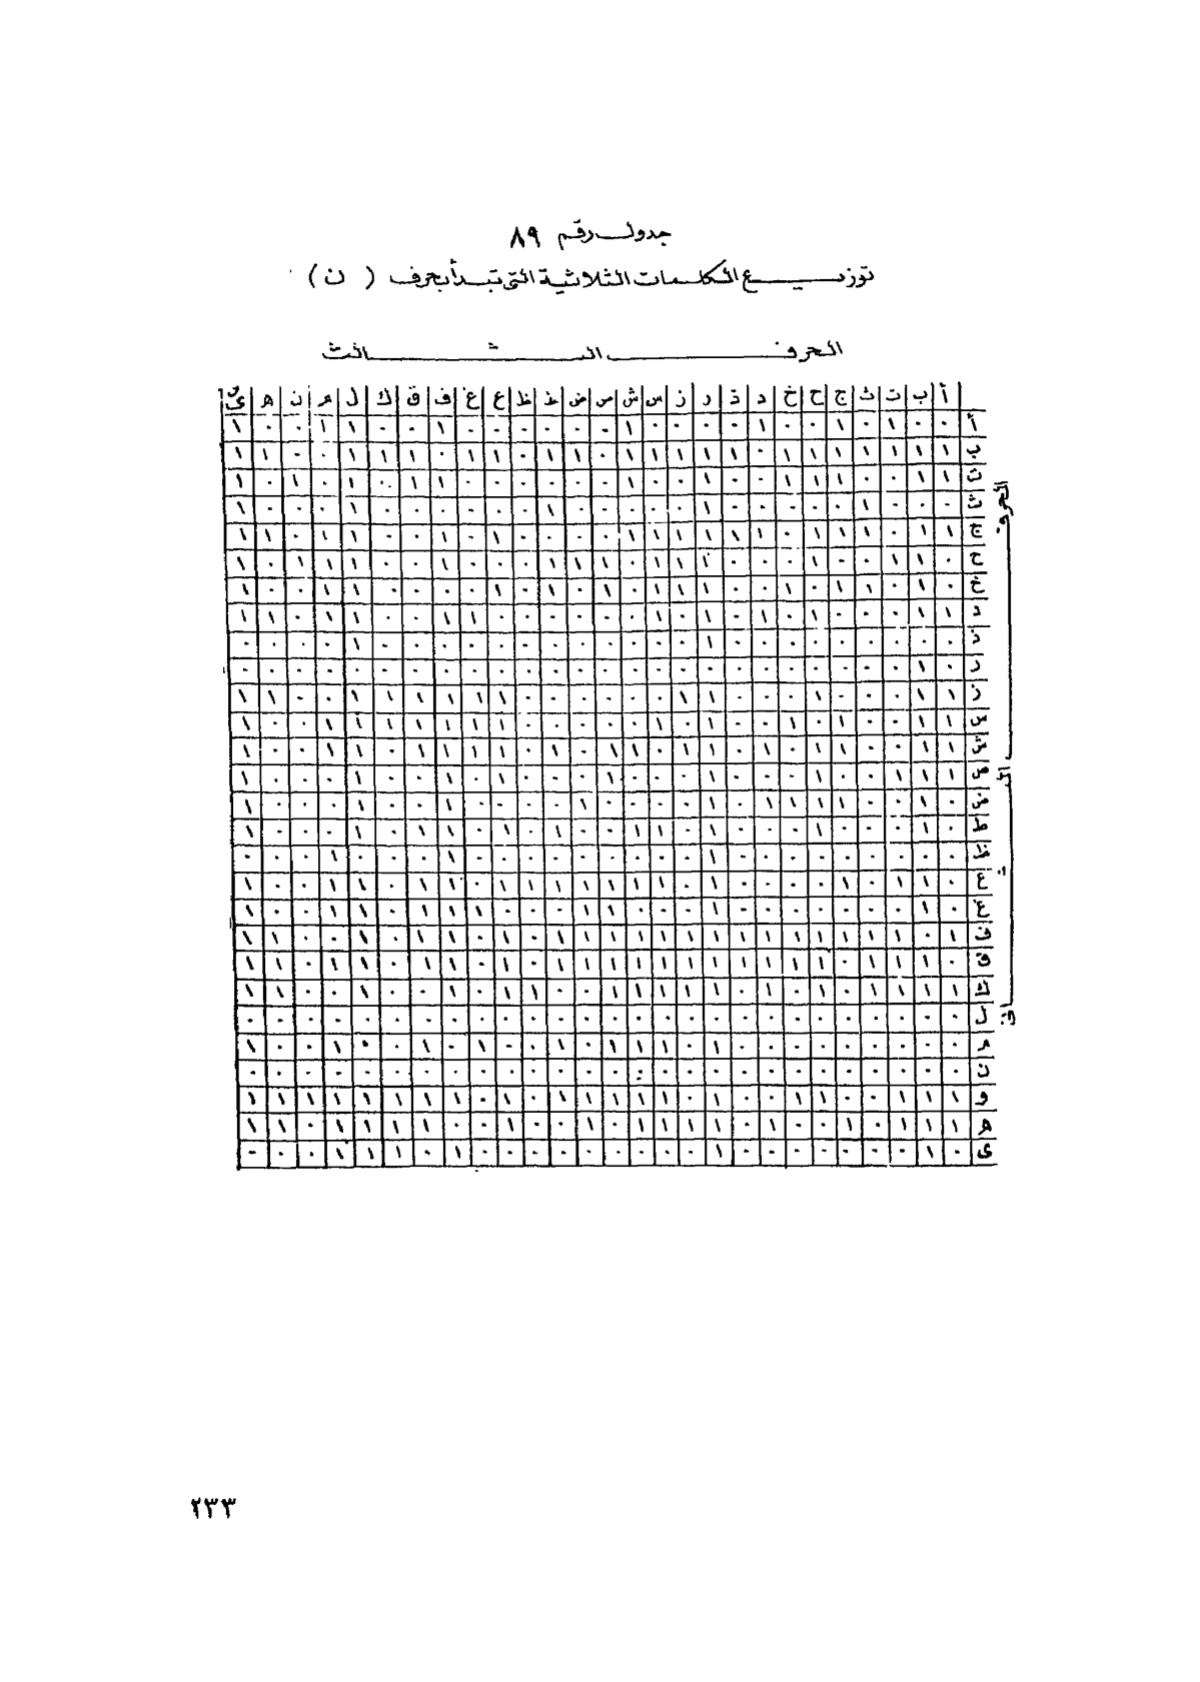 جدول رقم ٨٩
توزيع الكلمات الثلاثية التى تبدأ بحرف ( ن )
الحرف الثالث
أ ب ت ث ج ح خ د ذ ر ز س ش ص ض ط ظ ع غ ف ق ك ل م ن ه ى
الحرف الثانى
أ ٠ ٠ ١ ٠ ١ ٠ ٠ ١ ٠ ٠ ٠ ٠ ١ ٠ ٠ ٠ ٠ ٠ ٠ ١ ٠ ٠ ١ ١ ٠ ٠ ١
ب ١ ١ ١ ١ ١ ١ ١ ٠ ١ ١ ١ ١ ١ ٠ ١ ١ ٠ ١ ١ ٠ ١ ١ ١ ٠ ٠ ١ ١
ت ١ ١ ٠ ٠ ١ ١ ١ ٠ ٠ ١ ٠ ٠ ١ ٠ ٠ ٠ ٠ ٠ ٠ ١ ١ ٠ ١ ٠ ١ ٠ ١
ث ٠ ٠ ٠ ١ ٠ ٠ ٠ ٠ ٠ ١ ٠ ٠ ٠ ٠ ٠ ١ ٠ ٠ ٠ ٠ ٠ ٠ ١ ٠ ٠ ٠ ١
ج ١ ١ ٠ ١ ١ ١ ٠ ١ ١ ١ ١ ١ ١ ٠ ٠ ٠ ٠ ١ ٠ ١ ٠ ٠ ١ ١ ٠ ١ ١
ح ٠ ١ ١ ٠ ٠ ١ ٠ ٠ ٠ ١ ١ ١ ٠ ١ ١ ١ ٠ ٠ ٠ ١ ٠ ٠ ١ ١ ١ ٠ ١
خ ٠ ١ ٠ ١ ١ ٠ ١ ٠ ٠ ١ ١ ١ ٠ ١ ٠ ١ ٠ ١ ٠ ٠ ٠ ٠ ١ ١ ٠ ٠ ١
د ١ ١ ٠ ٠ ٠ ١ ٠ ١ ٠ ١ ٠ ١ ٠ ٠ ٠ ٠ ٠ ٠ ١ ١ ٠ ٠ ١ ١ ٠ ١ ١
ذ ٠ ٠ ٠ ٠ ٠ ٠ ٠ ٠ ٠ ١ ٠ ٠ ٠ ٠ ٠ ٠ ٠ ٠ ٠ ٠ ٠ ٠ ١ ٠ ٠ ٠ ٠
ر ٠ ١ ٠ ٠ ٠ ٠ ٠ ٠ ٠ ٠ ٠ ٠ ٠ ٠ ٠ ٠ ٠ ٠ ٠ ٠ ٠ ٠ ٠ ٠ ٠ ٠ ٠
ز ١ ١ ٠ ٠ ٠ ١ ٠ ٠ ٠ ١ ١ ٠ ٠ ٠ ٠ ٠ ٠ ١ ١ ١ ١ ١ ١ ٠ ٠ ١ ١
س ١ ١ ٠ ٠ ١ ٠ ١ ٠ ٠ ١ ٠ ١ ٠ ٠ ٠ ٠ ٠ ١ ١ ١ ١ ١ ١ ١ ٠ ٠ ١
ش ١ ١ ٠ ٠ ١ ١ ٠ ١ ٠ ١ ١ ٠ ١ ١ ٠ ١ ٠ ١ ١ ١ ١ ٠ ١ ١ ٠ ٠ ١
ص ١ ١ ١ ٠ ٠ ١ ٠ ٠ ٠ ١ ٠ ٠ ٠ ١ ٠ ٠ ٠ ١ ٠ ١ ٠ ٠ ١ ٠ ٠ ٠ ١
ض ٠ ١ ٠ ٠ ١ ١ ١ ١ ٠ ١ ٠ ٠ ٠ ٠ ١ ٠ ٠ ٠ ٠ ١ ٠ ٠ ١ ٠ ٠ ٠ ١
ط ٠ ١ ٠ ٠ ٠ ١ ٠ ٠ ٠ ١ ٠ ١ ١ ٠ ٠ ١ ٠ ١ ٠ ١ ١ ٠ ١ ٠ ٠ ٠ ١
ظ ٠ ٠ ٠ ٠ ٠ ٠ ٠ ٠ ٠ ١ ٠ ٠ ٠ ٠ ٠ ٠ ٠ ٠ ٠ ١ ٠ ٠ ٠ ١ ٠ ٠ ٠
ع ٠ ١ ١ ٠ ١ ٠ ٠ ٠ ٠ ١ ٠ ١ ١ ١ ١ ١ ١ ١ ٠ ١ ١ ٠ ١ ١ ٠ ٠ ١
غ ٠ ١ ٠ ٠ ٠ ٠ ٠ ٠ ٠ ١ ٠ ٠ ٠ ١ ١ ٠ ٠ ٠ ١ ١ ١ ٠ ١ ١ ٠ ٠ ١
ف ١ ٠ ١ ١ ١ ١ ١ ١ ١ ١ ١ ١ ١ ١ ١ ١ ٠ ١ ٠ ١ ١ ٠ ١ ٠ ٠ ١ ١
ق ٠ ١ ١ ١ ٠ ١ ١ ١ ١ ١ ١ ١ ١ ١ ١ ١ ٠ ١ ٠ ١ ١ ٠ ١ ١ ٠ ١ ١
ك ١ ١ ١ ١ ٠ ١ ٠ ١ ٠ ١ ١ ١ ١ ١ ٠ ٠ ١ ١ ٠ ١ ٠ ٠ ١ ٠ ٠ ١ ١
ل ٠ ٠ ٠ ٠ ٠ ٠ ٠ ٠ ٠ ٠ ٠ ٠ ٠ ٠ ٠ ٠ ٠ ٠ ٠ ٠ ٠ ٠ ٠ ٠ ٠ ٠ ٠
م ٠ ٠ ٠ ٠ ٠ ٠ ٠ ٠ ٠ ١ ٠ ١ ١ ١ ٠ ١ ٠ ٠ ١ ٠ ١ ٠ ٠ ١ ٠ ٠ ١
ن ٠ ٠ ٠ ٠ ٠ ٠ ٠ ٠ ٠ ٠ ٠ ٠ ٠ ٠ ٠ ٠ ٠ ٠ ٠ ٠ ٠ ٠ ٠ ٠ ٠ ٠ ٠
و ١ ١ ١ ٠ ٠ ١ ١ ٠ ٠ ١ ٠ ١ ١ ١ ١ ١ ٠ ١ ٠ ١ ١ ١ ١ ١ ١ ١ ١
ه ١ ١ ١ ٠ ١ ٠ ٠ ١ ٠ ١ ١ ١ ١ ٠ ١ ٠ ٠ ١ ٠ ٠ ١ ١ ١ ١ ٠ ١ ١
ى ٠ ١ ٠ ٠ ٠ ٠ ٠ ٠ ٠ ١ ٠ ٠ ٠ ٠ ٠ ٠ ٠ ٠ ٠ ١ ٠ ١ ١ ١ ٠ ٠ ٠
٢٣٣